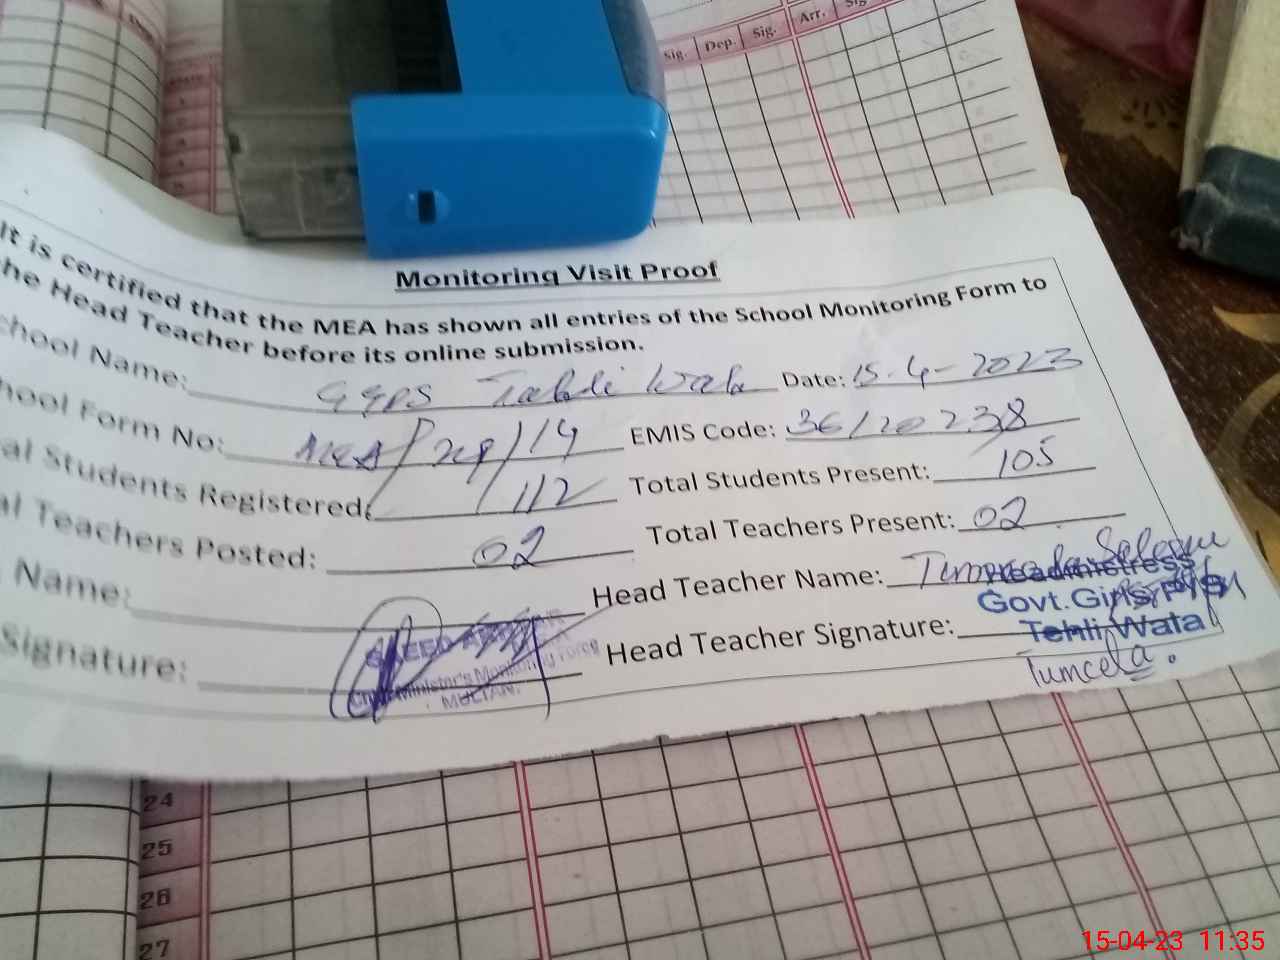 Sig. Dep. Sig. Arr. Sig
Monitoring Visit Proof
It is certified that the MEA has shown all entries of the School Monitoring Form to
the Head Teacher before its online submission.
chool Name: GGPS Wala Date: 15-4-2023
hool Form No: EMIS Code: 36120238
al Students Registered: 112 Total Students Present: 105
al Teachers Posted: 02 Total Teachers Present: 02
Name: Head Teacher Name: Saleem
Headmistress
Govt.Girls P/S
Signature: Head Teacher Signature:
Tehli Wala
Chief Minister's Monitoring Force
MULTAN.
24
25
26
27
15-04-23 11:35